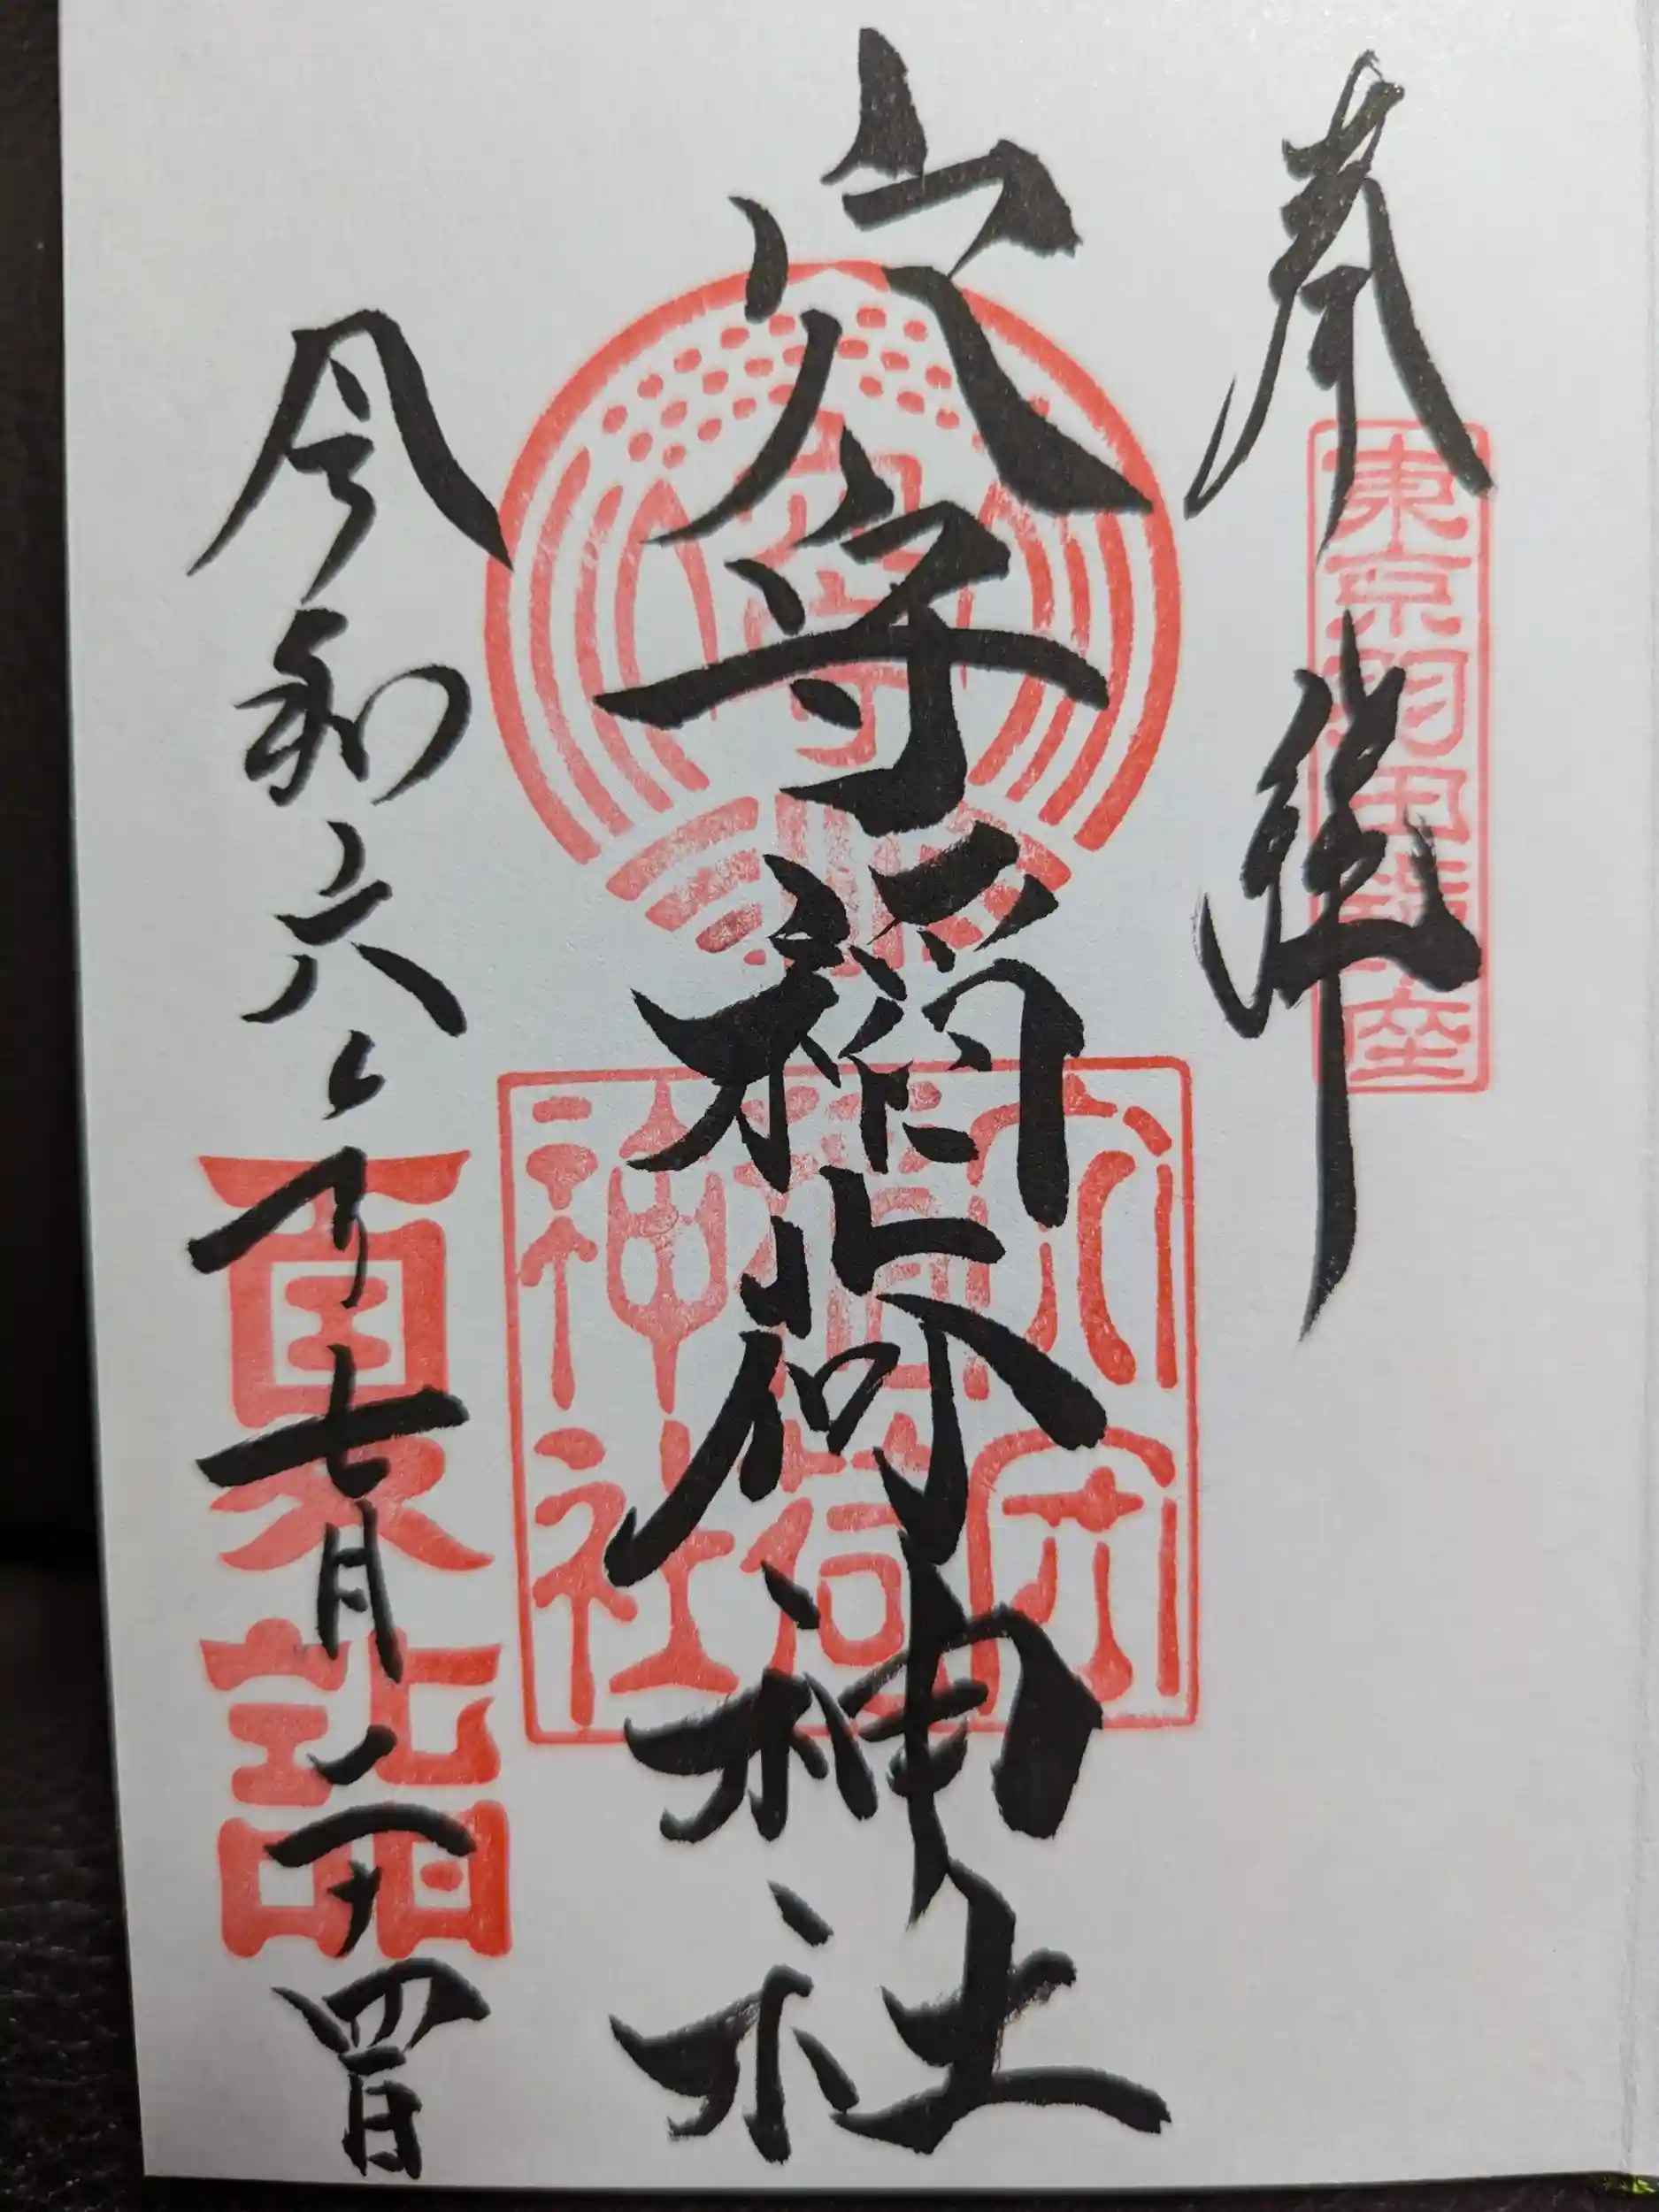 奉拝
東京羽田鎮座
穴守稲荷神社
穴守
穴守稲荷神社
令和六年七月二十四日